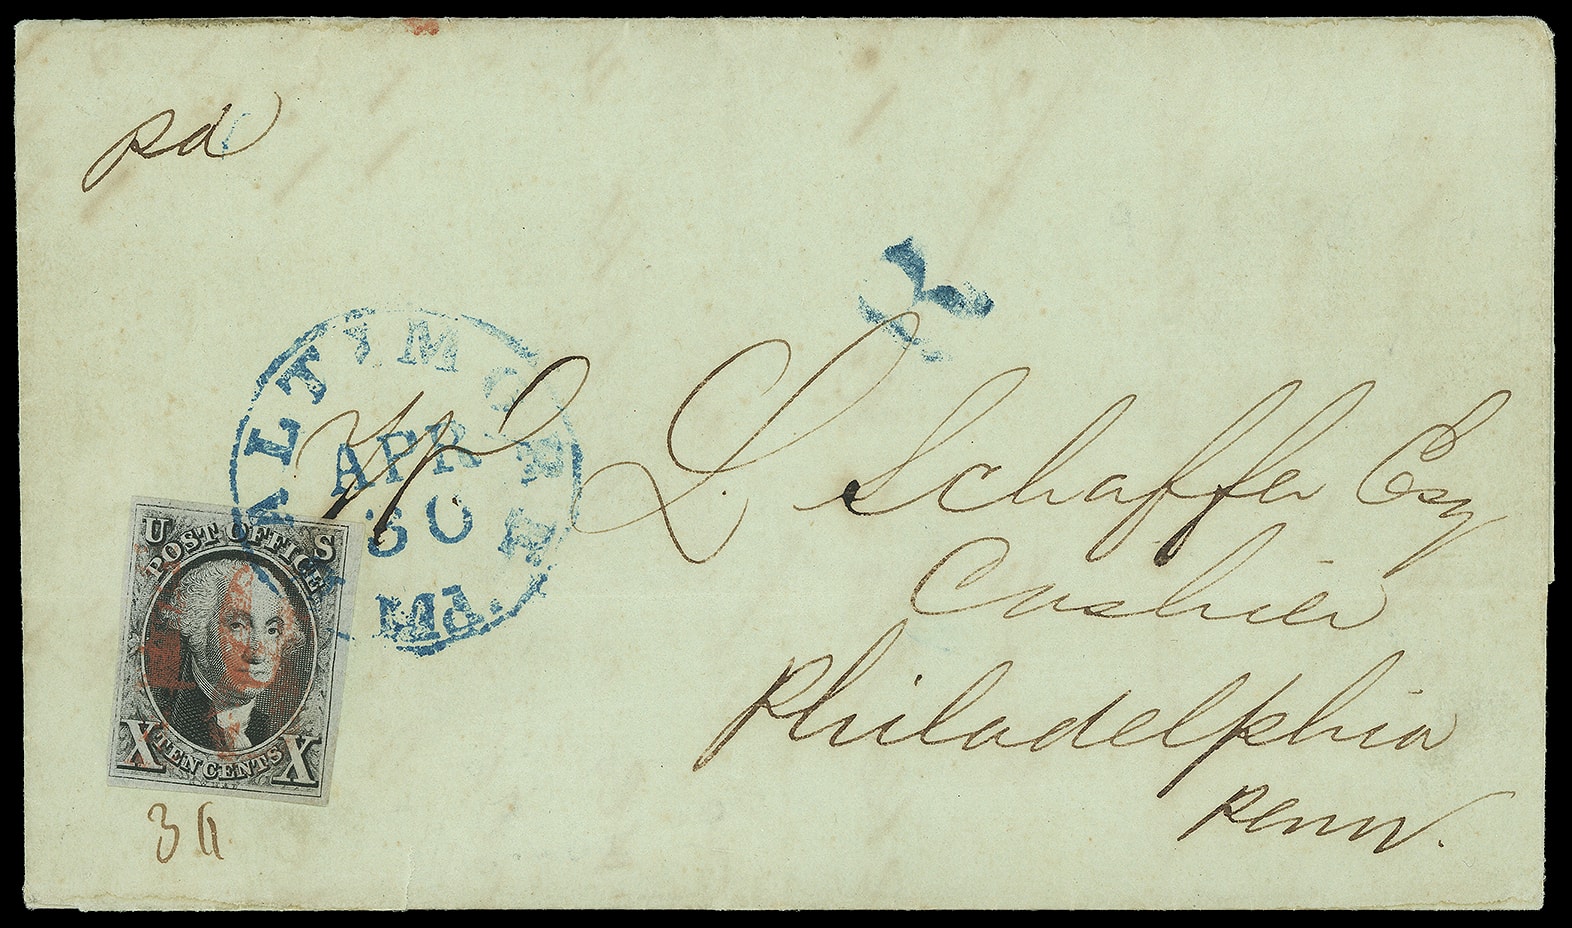 pd
BALTIMORE
APR
30
Md.
R.R.
U S
POST OFFICE
X TEN CENTS X
L. Schaffer Esq
Cashier
Philadelphia
Penn.